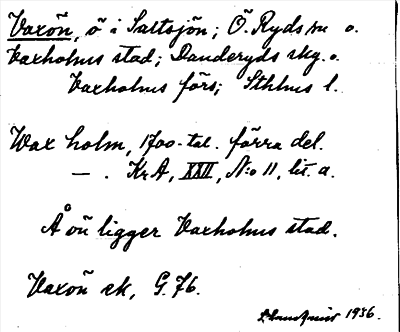 Vaxön, ö i Saltsjön; Ö. Ryds sn o.
Vaxholms stad; Danderyds skg. o.
Vaxholms förs; Sthlms l.
Wax holm, 1700-tal. förra del.
— . KrA, XXII, N:o 11, lit. a.
Å ön ligger Vaxholms stad.
Vaxön ek, G.76.
1936.